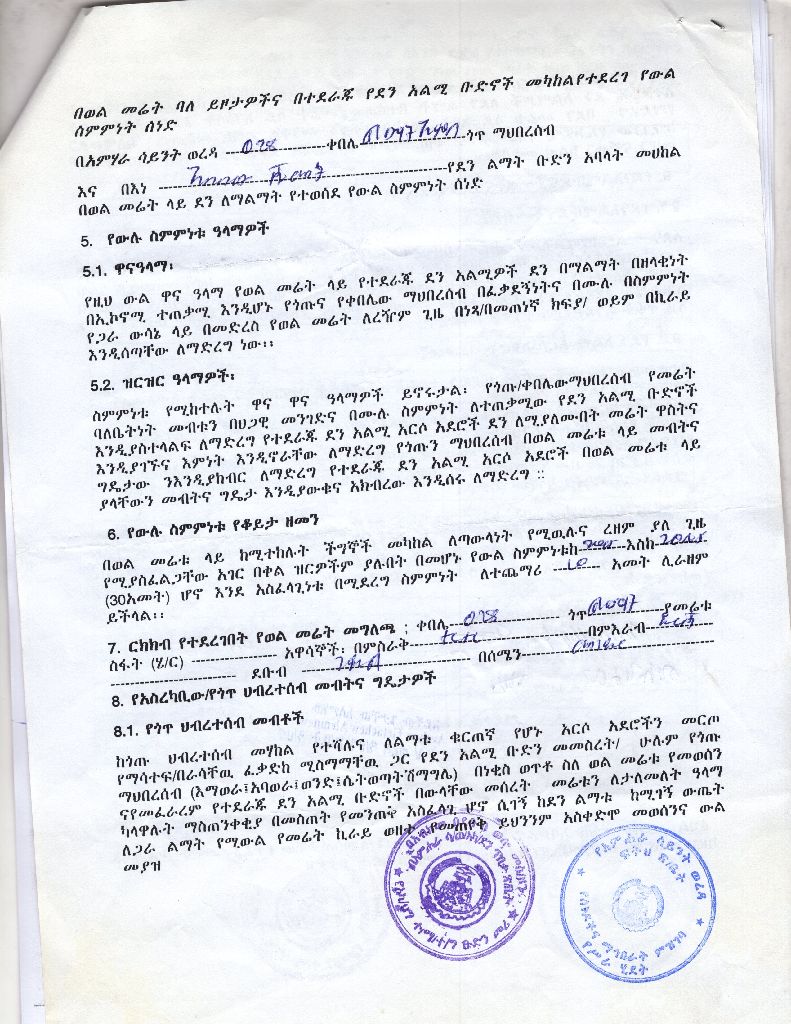 በወል መሬት ባለ ይዞታዎችና በተደራጁ የደን አልሚ ቡድኖች መካከልየተደረገ የውል
ስምምነት ሰነድ
በአምሃራ ሳይንት ወረዳ ---------- ቀበሌ ---------- ጎጥ ማህበረሰብ
እና በእነ ---------- የደን ልማት ቡድን አባላት መሀከል
በወል መሬት ላይ ደን ለማልማት የተወሰደ የውል ስምምነት ሰነድ
5. የውሉ ስምምነቱ ዓላማዎች
5.1. ዋናዓላማ፡
የዚህ ውል ዋና ዓላማ የወል መሬት ላይ የተደራጁ ደን አልሚዎች ደን በማልማት በዘላቂነት
በኢኮኖሚ ተጠቃሚ እንዲሆኑ የጎጡና የቀበሌው ማህበረሰብ በፈቃደኝነትና በሙሉ በስምምነት
የጋራ ውሳኔ ላይ በመድረስ የወል መሬት ለረዥም ጊዜ በነጻ/በመጠነኛ ክፍያ/ ወይም በኪራይ
እንዲሰጣቸው ለማድረግ ነው፡፡
5.2. ዝርዝር ዓላማዎች፡
ስምምነቱ የሚከተሉት ዋና ዋና ዓላማዎች ይኖሩታል፡ የጎጡ/ቀበሌውማህበረሰብ የመሬት
ባለቤትነት መብቱን በህጋዊ መንገድና በሙሉ ስምምነት ለተጠቃሚው የደን አልሚ ቡድኖች
እንዲያስተላልፍ ለማድረግ የተደራጁ ደን አልሚ አርሶ አደሮች ደን ለሚያለሙበት መሬት ዋስትና
እንዲያገኙና እምነት እንዲኖራቸው ለማድረግ የጎጡን ማህበረሰብ በወል መሬቱ ላይ መብትና
ግዴታው ንእንዲያከብር ለማድረግ የተደራጁ ደን አልሚ አርሶ አደሮች በወል መሬቱ ላይ
ያላቸውን መብትና ግዴታ እንዲያውቁና አክብረው እንዲሰሩ ለማድረግ ፡፡
6. የውሉ ስምምነቱ የቆይታ ዘመን
በወል መሬቱ ላይ ከሚተከሉት ችግኞች መካከል ለጣውላነት የሚዉሉና ረዘም ያለ ጊዜ
የሚያስፈልጋቸው አገር በቀል ዝርዎችም ያሉበት በመሆኑ የውል ስምምነቱከ------እስከ------
(30አመት) ሆኖ እንደ አስፈላጊነቱ በሚደረግ ስምምነት ለተጨማሪ --10-- አመት ሊራዘም
ይችላል፡፡
7. ርክክብ የተደረገበት የወል መሬት መግለጫ ; ቀበሌ ---------- ጎጥ ---------- የመሬቱ
ስፋት (ሄ/ር) ---------- አዋሳኞች፡ በምስራቅ ---------- በምእራብ ----------
---------- ደቡብ ---------- በሰሜን ----------
8. የአስረካቢው/የጎጥ ህብረተሰብ መብትና ግዴታዎች
8.1. የጎጥ ህብረተሰብ መብቶች
ከጎጡ ህብረተሰብ መሃከል የተሻሉና ለልማቱ ቁርጠኛ የሆኑ አርሶ አደሮችን መርጦ
የማሳተፍ/በራሳቸዉ ፈቃድከ ሚስማማቸዉ ጋር የደን አልሚ ቡድን መመስረት/ ሁሉም የጎጡ
ማህበረሰብ (እማወራ፤አባወራ፤ወንድ፤ሴትወጣት፟ ሽማግሌ) በነቂስ ወጥቶ ስለ ወል መሬቱ የመወሰን
ናየመፈራረም የተደራጁ ደን አልሚ ቡድኖች በውላቸው መሰረት መሬቱን ለታለመለት ዓላማ
ካላዋሉት ማስጠንቀቂያ በመስጠት የመንጠቅ አስፈላጊ ሆኖ ሲገኝ ከደን ልማቱ ከሚገኝ ውጤት
ለጋራ ልማት የሚውል የመሬት ኪራይ ወዘተ የመጠየቅ ይህንንም አስቀድሞ መወሰንና ውል
መያዝ
የአምሐራ ሳይንት ወረዳ
ፍትህ ጽ/ቤት